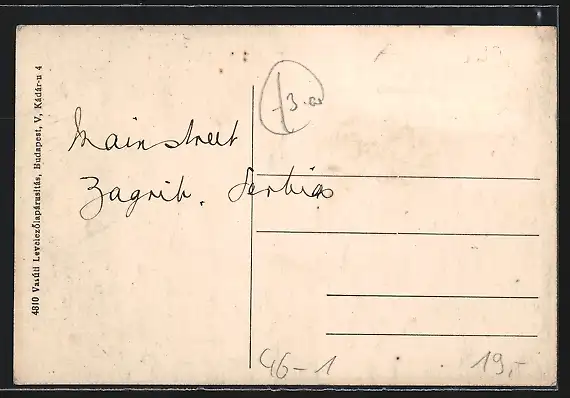 4810 Vasúti Levelezőlapárusítás, Budapest, V, Kádár-u 4
Mainstreet
Zagrib. Serbias
46-1
19,-